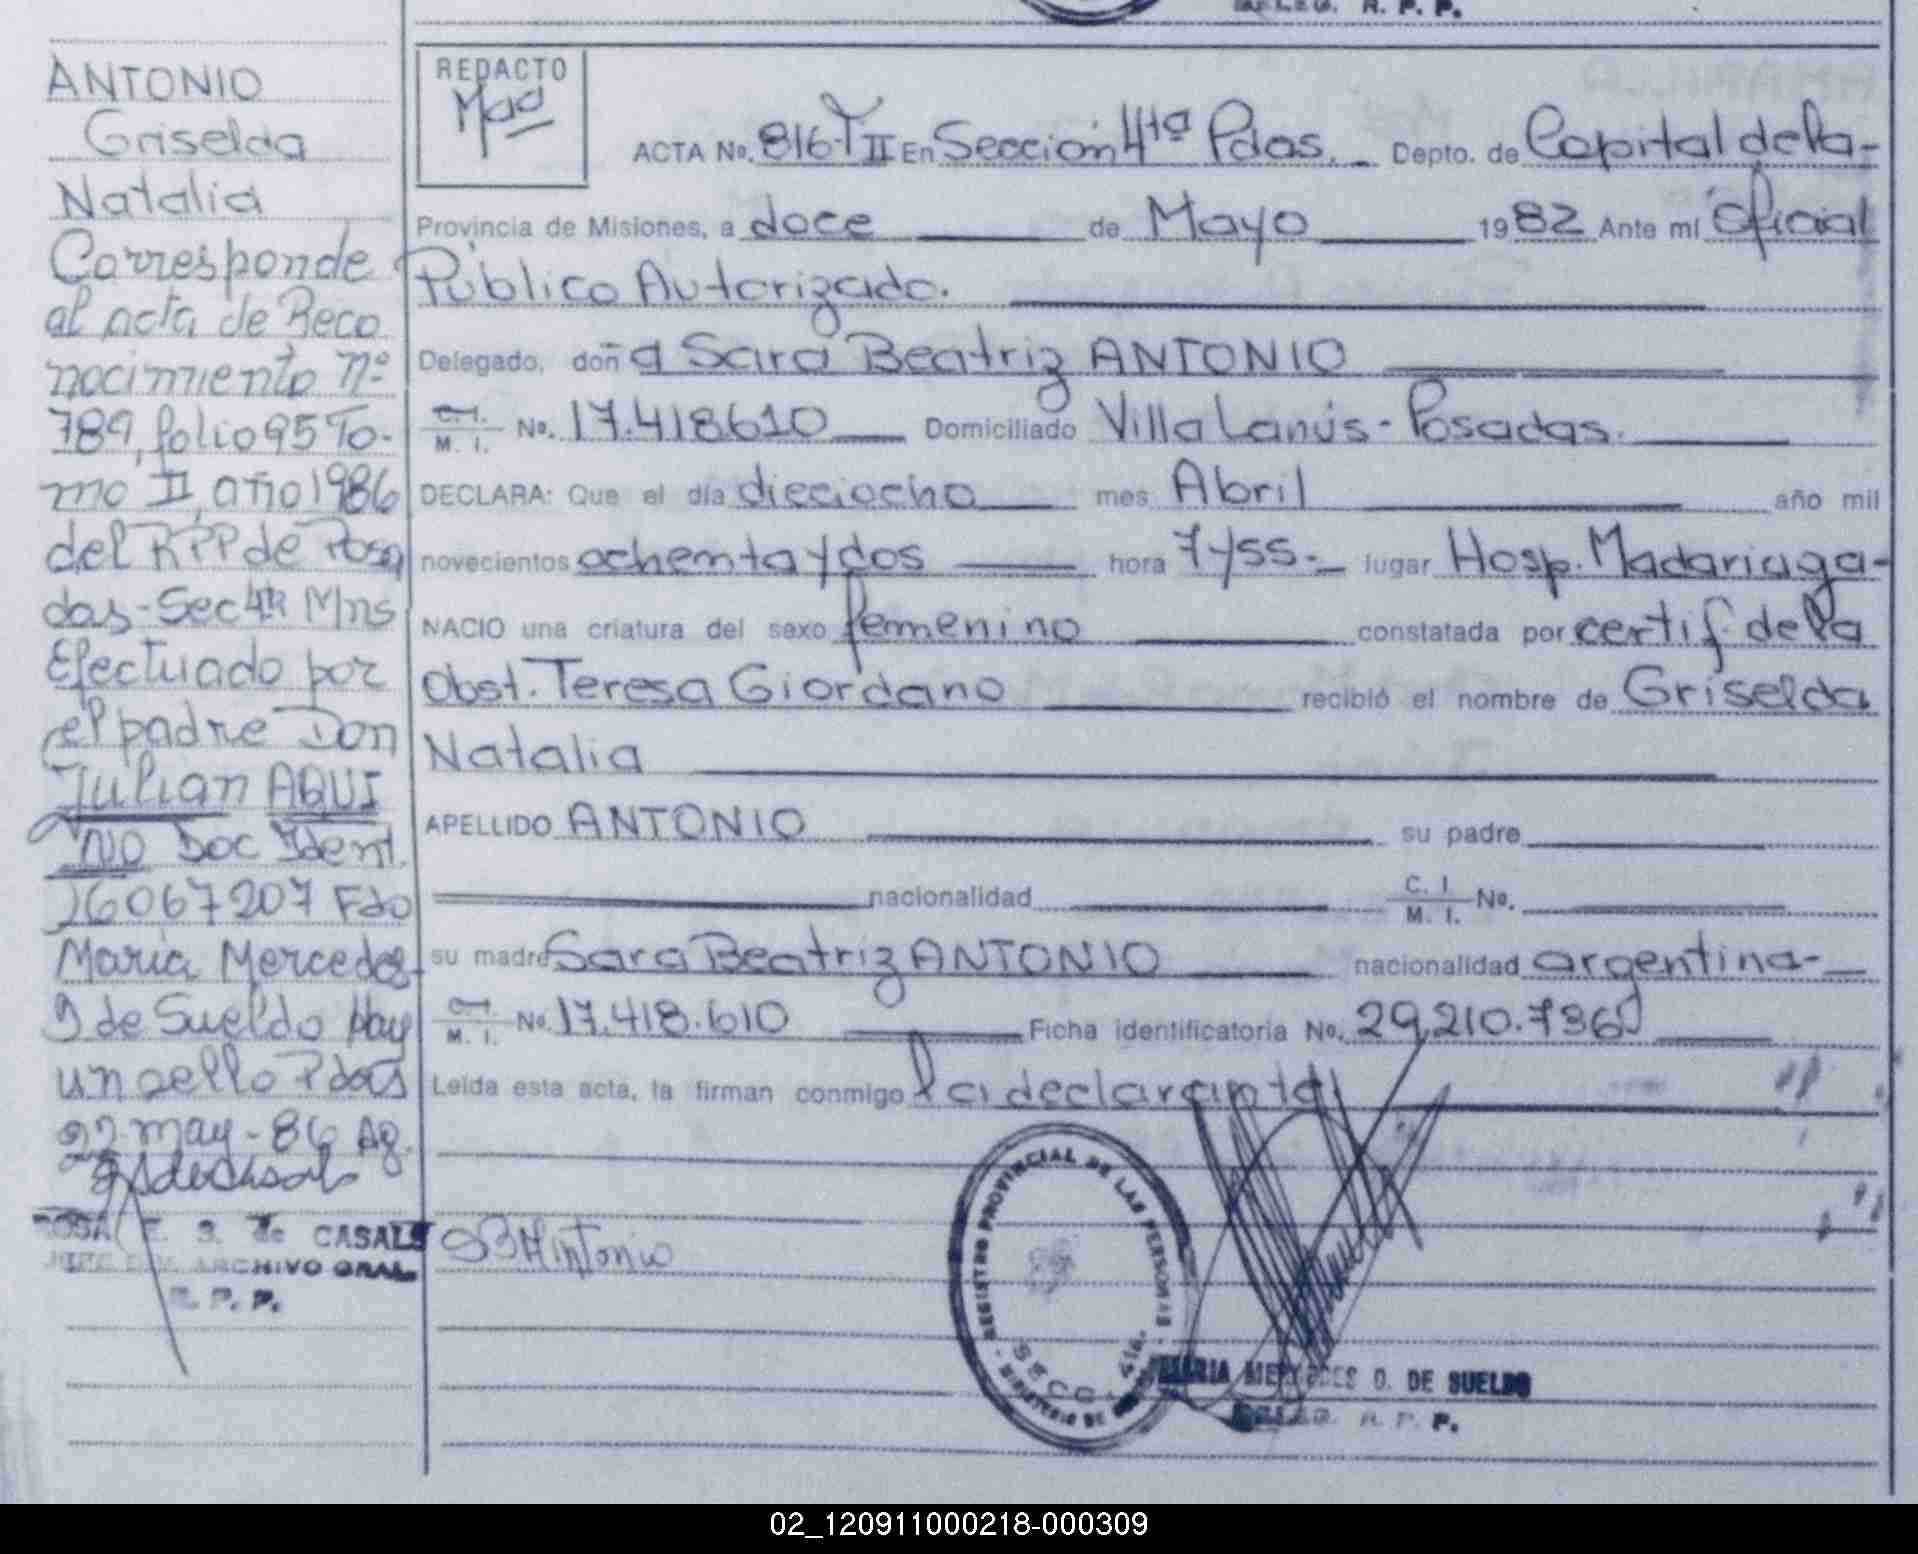 DELEG. R. P. P.
ANTONIO
Griselda
Natalia
Corresponde
al acta de Reco
nocimiento Nº
789, folio 95 To-
mo II, año 1986
del RPP de Posa
das - Sec 4ta Mns
Efectuado por
el padre Don
Julian AQUI
NO Doc Ident.
26067207 Fdo
Maria Mercedes
O de Sueldo Hay
un sello Pdas
22 may - 86 Ag.
ROSA E. S. de CASALS
JEFE DIV. ARCHIVO GRAL.
R. P. P.
REDACTO
Mad
ACTA No. 816 T II En Sección 4ta Pdas. Depto. de Capital de la-
Provincia de Misiones, a doce de Mayo 1982 Ante mí Oficial
Público Autorizado.
Delegado, doña Sara Beatriz ANTONIO
C. I. / M. I. No. 17.418610 Domiciliado Villa Lanús - Posadas.
DECLARA: Que el día dieciocho mes Abril año mil
novecientos ochenta y dos hora 7 y 55.- lugar Hosp. Madariaga-
NACIO una criatura del sexo femenino constatada por certif. de la
Obst. Teresa Giordano recibió el nombre de Griselda
Natalia
APELLIDO ANTONIO su padre
nacionalidad C. I. / M. I. No.
su madre Sara Beatriz ANTONIO nacionalidad argentina-
C. I. / M. I. No. 17.418.610 Ficha identificatoria No. 29.210.736
Leída esta acta, la firman conmigo la declarante
SBAntonio
REGISTRO PROVINCIAL DE LAS PERSONAS - MINISTERIO DE
SECC. 4ta.
MARIA MERCEDES O. DE SUELDO
DELEG. R. P. P.
02_120911000218-000309